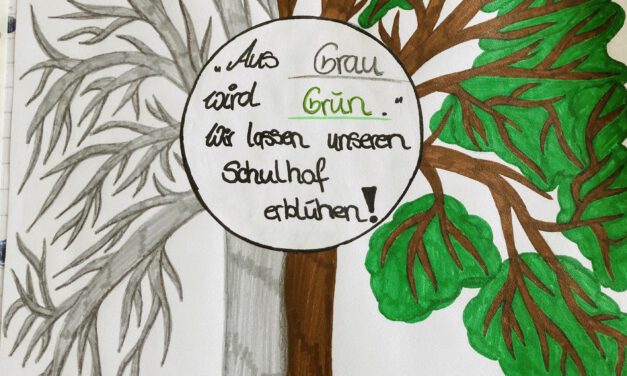 „Aus Grau
wird Grün."
Wir lassen unseren
Schulhof
erblühen!